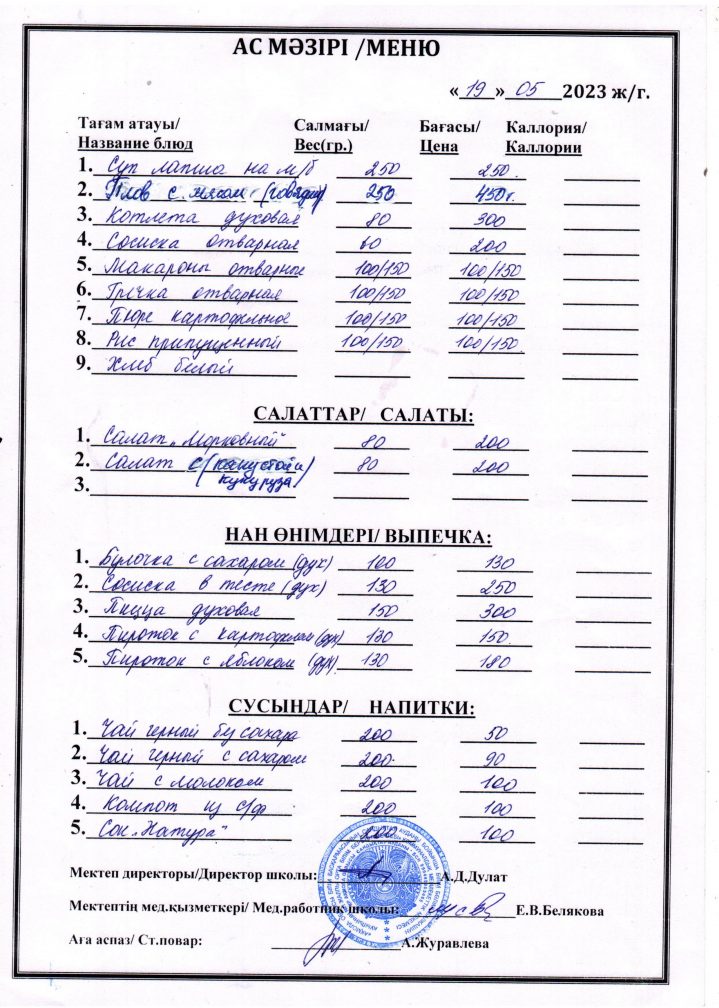 АС МӘЗІРІ /МЕНЮ
« 19 » 05 2023 ж/г.
Тағам атауы/ Салмағы/ Бағасы/ Каллория/
Название блюд Вес(гр.) Цена Каллории
1. Суп лапша на м/б 250 250.
2. Плов с мясом (говядина) 250 450г.
3. Котлета духовая 80 300
4. Сосиска отварная 60 200
5. Макароны отварные 100/150 100/150
6. Гречка отварная 100/150 100/150
7. Пюре картофельное 100/150 100/150
8. Рис припущенный 100/150 100/150.
9. Хлеб белый
САЛАТТАР/ САЛАТЫ:
1. Салат „Морковный" 80 200
2. Салат с (капустой и 80 200
3. кукуруза)
НАН ӨНІМДЕРІ/ ВЫПЕЧКА:
1. Булочка с сахаром (дух) 100 130
2. Сосиска в тесте (дух) 130 250
3. Пицца духовая 150 300
4. Пирожок с картофелем (дух) 130 150.
5. Пирожок с яблоком (дух). 130 180
СУСЫНДАР/ НАПИТКИ:
1. Чай черный без сахара 200 50
2. Чай черный с сахаром 200. 90
3. Чай с молоком 200 100
4. Компот из с/ф 200 100
5. Сок „Натура" 200 100
Мектеп директоры/Директор школы: А.Д.Дулат
Мектептің мед.қызметкері/ Мед.работник школы: Е.В.Белякова
Аға аспаз/ Ст.повар: А.Журавлева